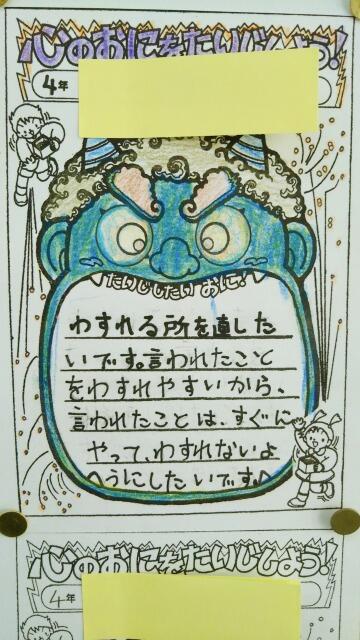 心のおにをたいじしよう!
4年
たいじしたいおに!
わすれる所を直した
いです。言われたこと
をわすれやすいから、
言われたことは、すぐに
やって、わすれないよ
うにしたいです。
心のおにをたいじしよう!
4年